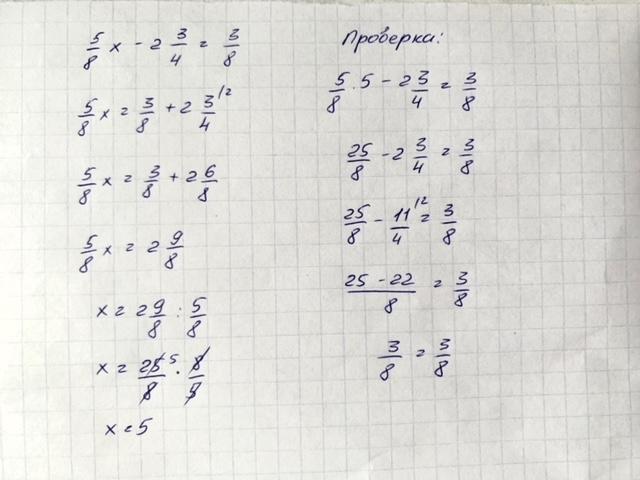 5/8 x - 2 3/4 = 3/8
5/8 x = 3/8 + 2 3/4 /2
5/8 x = 3/8 + 2 6/8
5/8 x = 2 9/8
x = 2 9/8 : 5/8
x = 25/8 5 · 8/5
x = 5
Проверка:
5/8 · 5 - 2 3/4 = 3/8
25/8 - 2 3/4 = 3/8
25/8 - 11/4 /2 = 3/8
25 - 22/8 = 3/8
3/8 = 3/8